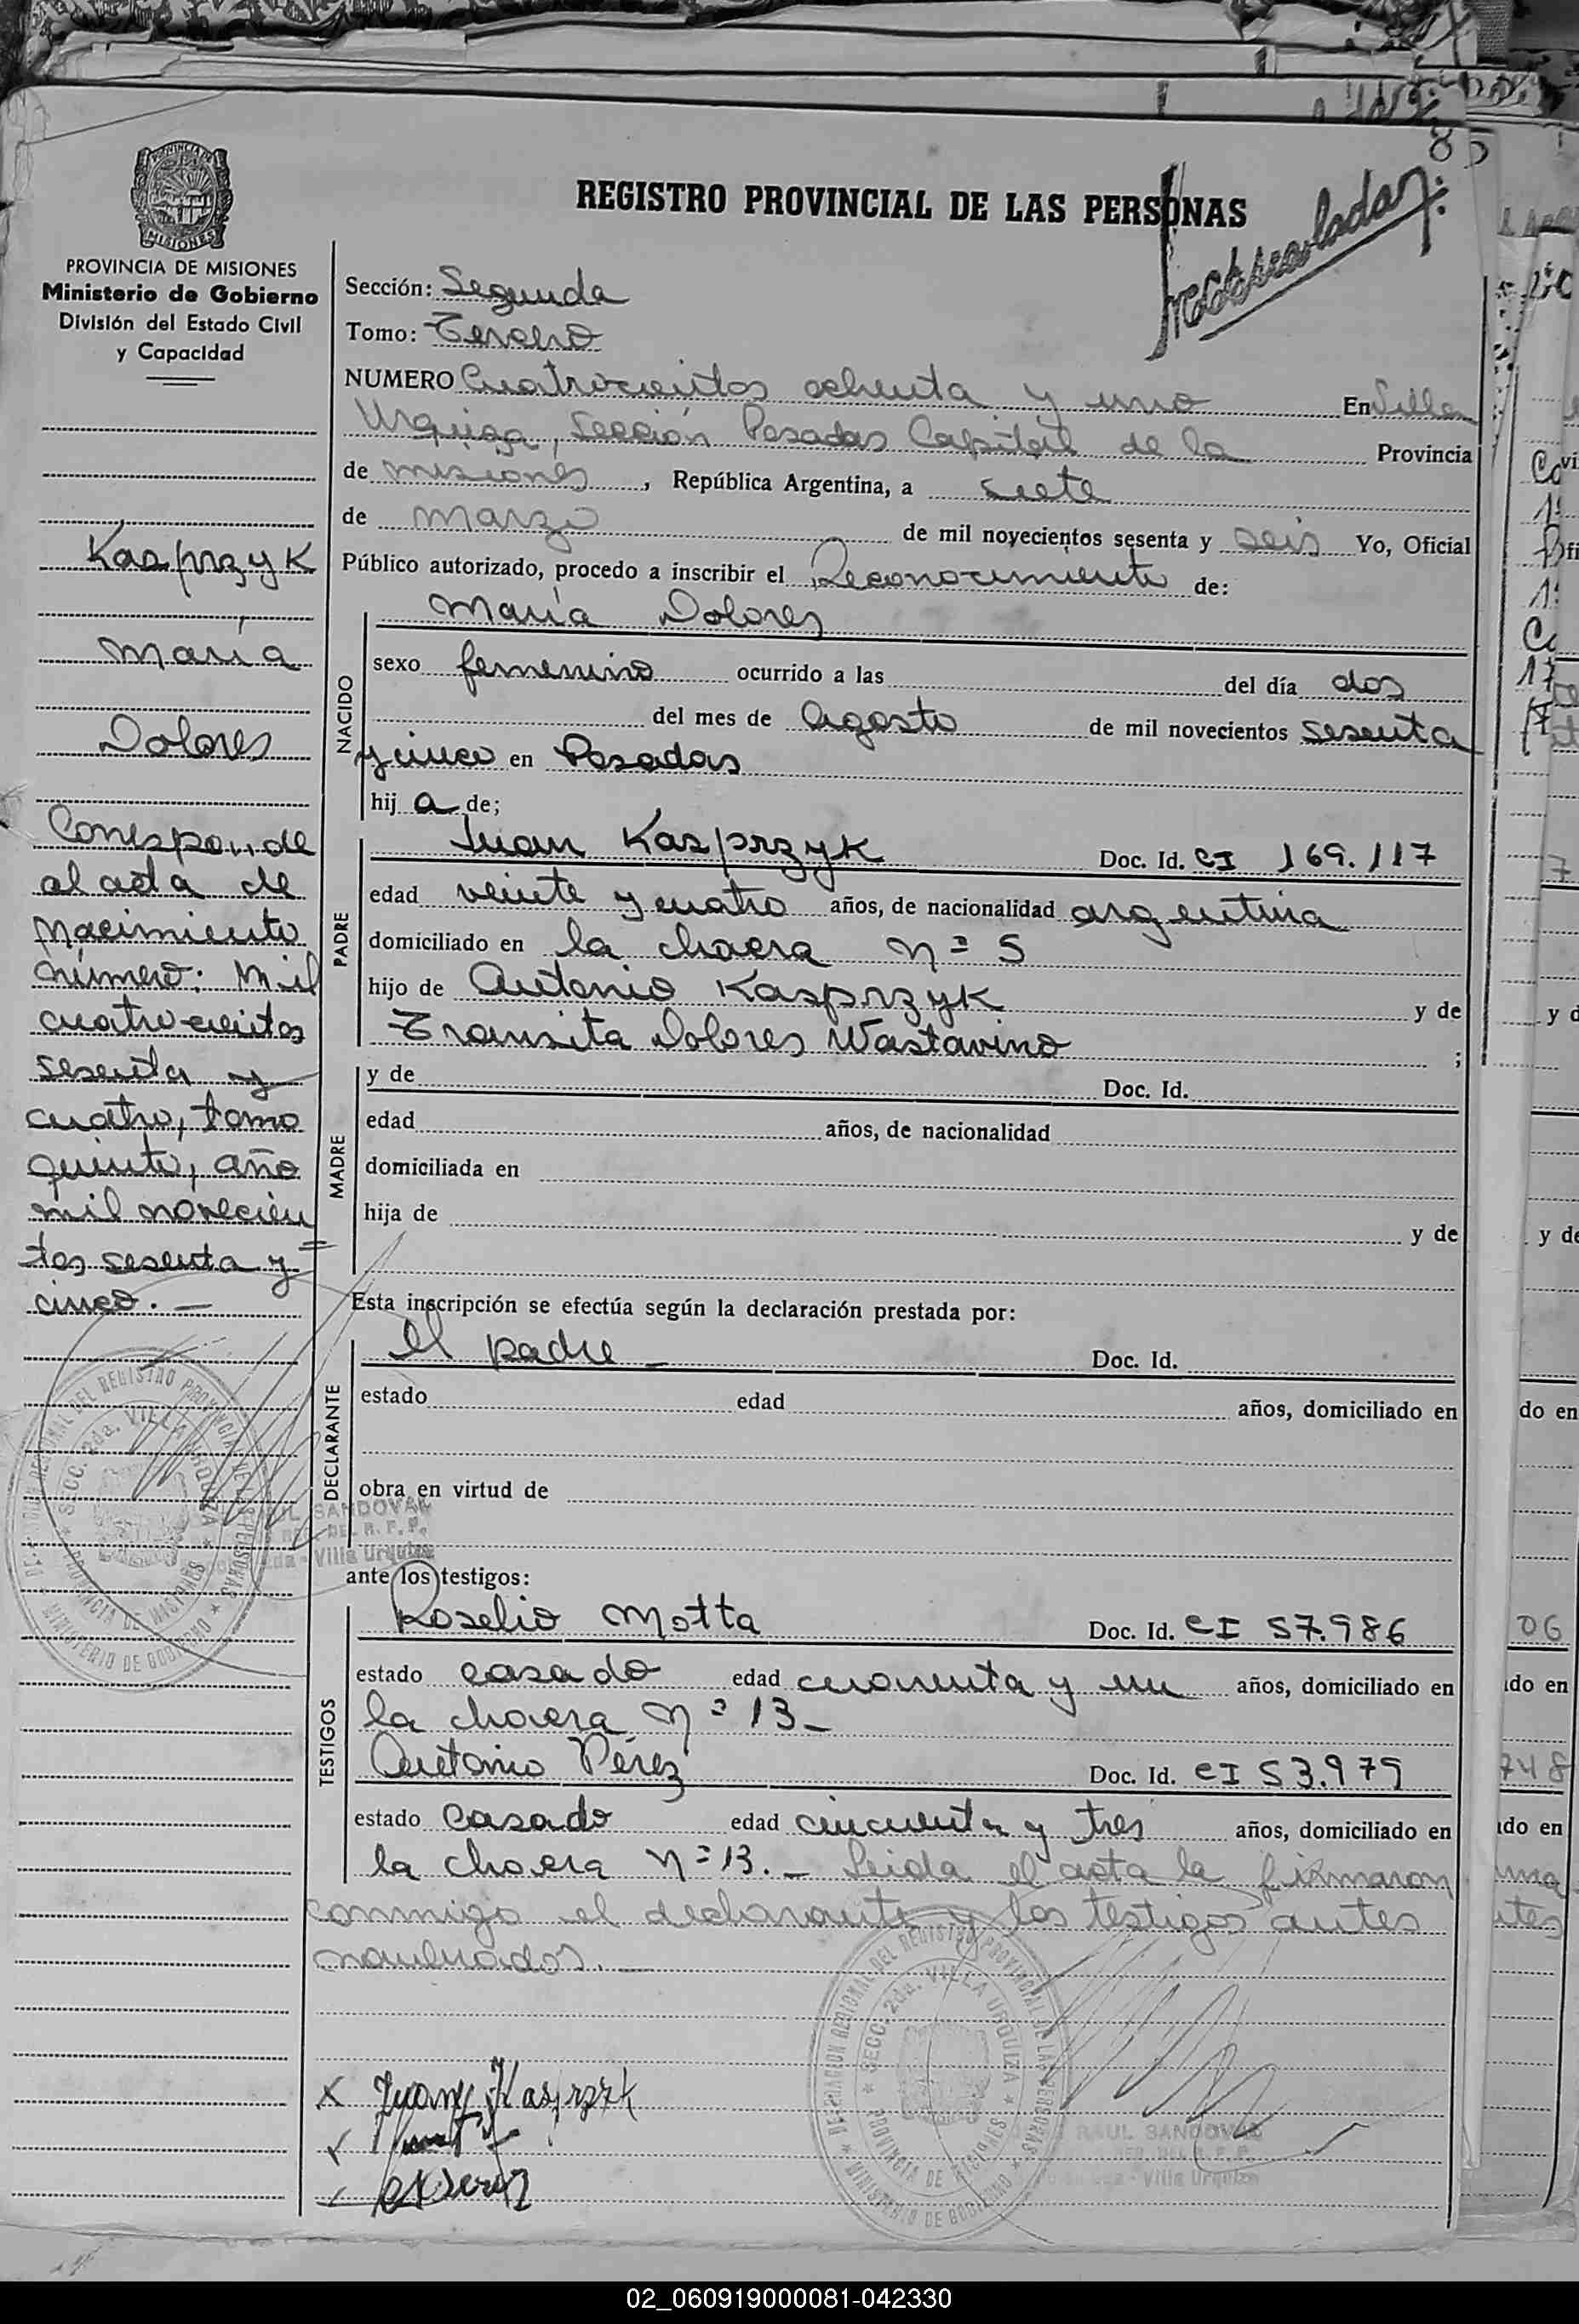 85
PROVINCIA DE MISIONES
REGISTRO PROVINCIAL DE LAS PERSONAS
PROVINCIA DE MISIONES
Ministerio de Gobierno
División del Estado Civil
y Capacidad
Kasprzyk
María
Dolores
Corresponde
al acta de
nacimiento
número: Mil
cuatrocientos
sesenta y
cuatro, tomo
quinto, año
mil novecien
tos sesenta y
cinco. —
Sección: Segunda
Tomo: Tercero
NUMERO Cuatrocientos ochenta y uno En Villa
Urquiza, Sección Posadas Capital de la Provincia
de misiones, República Argentina, a siete
de marzo de mil novecientos sesenta y seis Yo, Oficial
Público autorizado, procedo a inscribir el Reconocimiento de:
María Dolores
NACIDO
sexo femenino ocurrido a las del día dos
del mes de Agosto de mil novecientos sesenta
y cinco en Posadas
hij a de;
PADRE
Juan Kasprzyk Doc. Id. CI 169.117
edad veinte y cuatro años, de nacionalidad argentina
domiciliado en la chacra nº 5
hijo de Antonio Kasprzyk y de
Transita Dolores Wastavino ;
MADRE
y de Doc. Id.
edad años, de nacionalidad
domiciliada en
hija de y de
Esta inscripción se efectúa según la declaración prestada por:
DECLARANTE
el padre — Doc. Id.
estado edad años, domiciliado en
obra en virtud de
ante los testigos:
TESTIGOS
Roselio Motta Doc. Id. CI 57.986
estado casado edad cuarenta y un años, domiciliado en
la chacra nº 13 —
Antonio Pérez Doc. Id. CI 53.979
estado casado edad cincuenta y tres años, domiciliado en
la chacra nº 13. — Leida el acta la firmaron
conmigo el declarante y los testigos antes
nombrados. —
DELEGACION REGIONAL DEL REGISTRO PROVINCIAL DE LAS PERSONAS
SECC. 2da. VILLA URQUIZA
PROVINCIA DE MISIONES
MINISTERIO DE GOBIERNO
RAUL SANDOVAL
DEL R. P. P.
Villa Urquiza
x Juan Kasprzyk
02_060919000081-042330